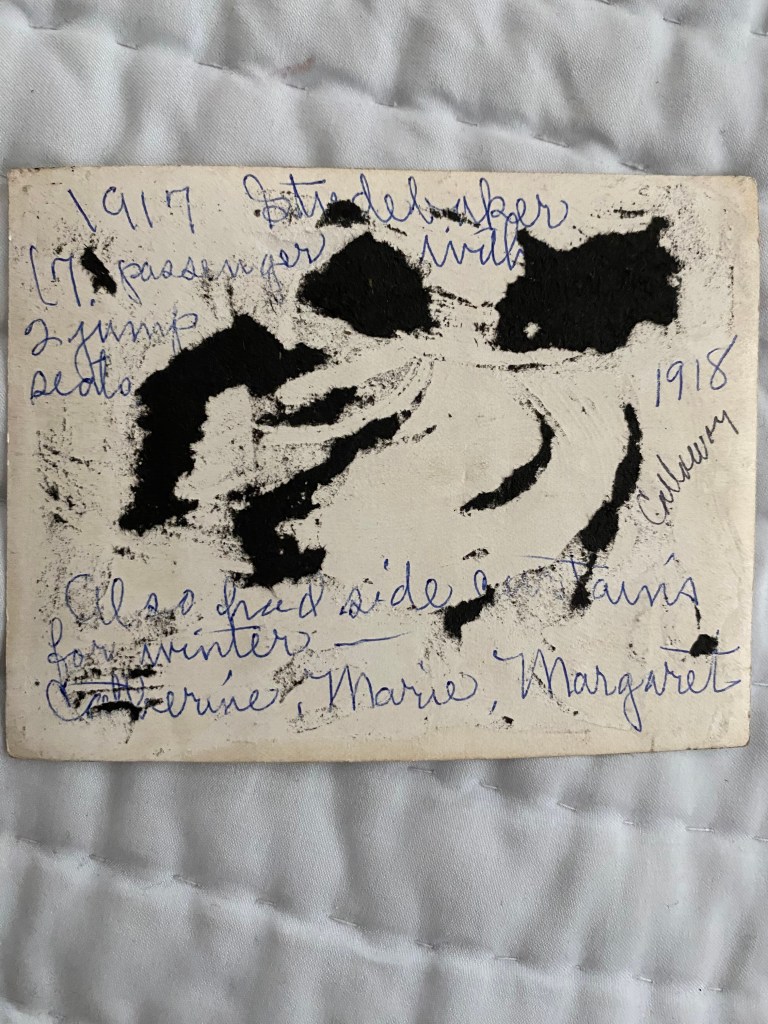 1917 Studebaker
(7. passenger with
2 jump
seats
1918
Calloway
Also had side curtains
for winter —
Catherine, Marie, Margaret